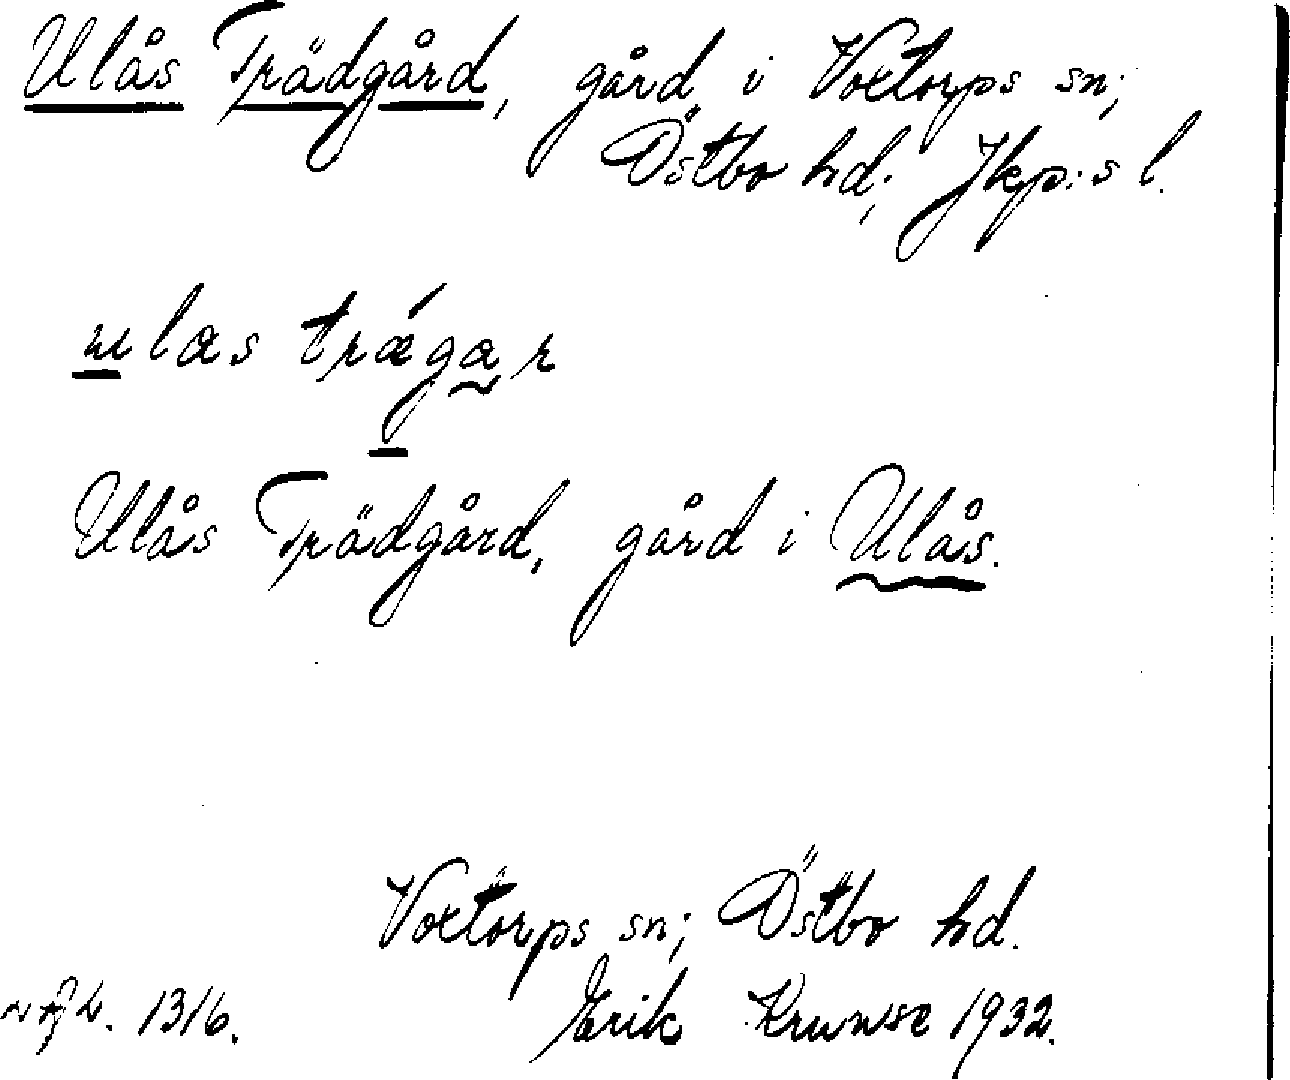 Ulås Trädgård, gård i Voxtorps sn;
Östbo hd; Jkp:s l.
ulas trægar
Ulås Trädgård, gård i Ulås.
Voxtorps sn; Östbo hd.
1316. Erik Krunse 1932.